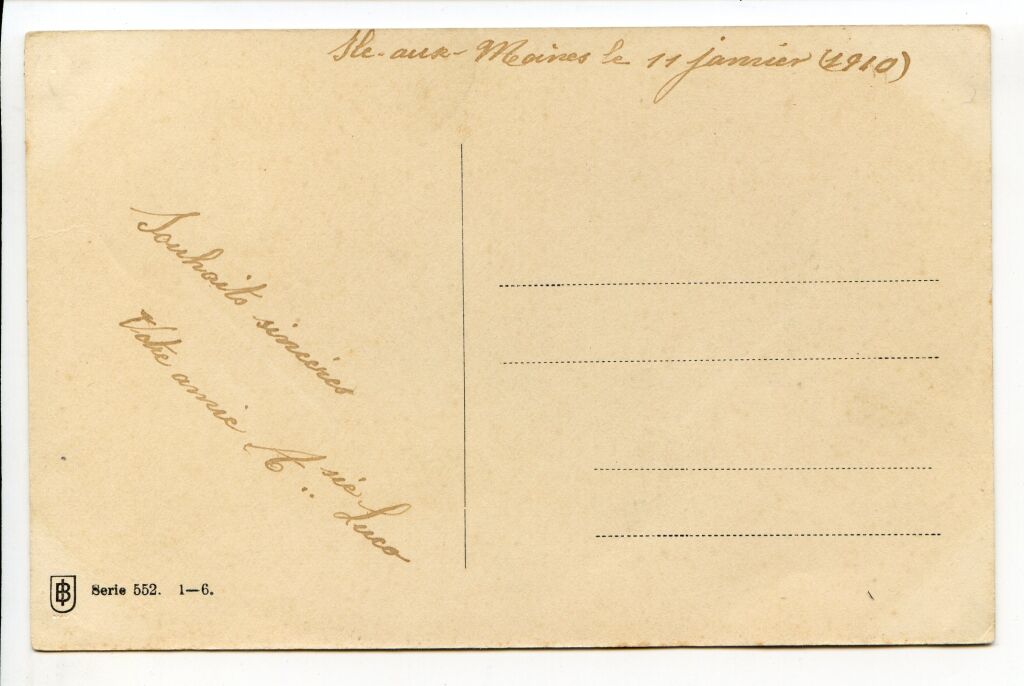 Ile-aux-Moines le 11 janvier (1910)
Souhaits sincères
Votre amie A..sie Luco
B
Serie 552. 1—6.